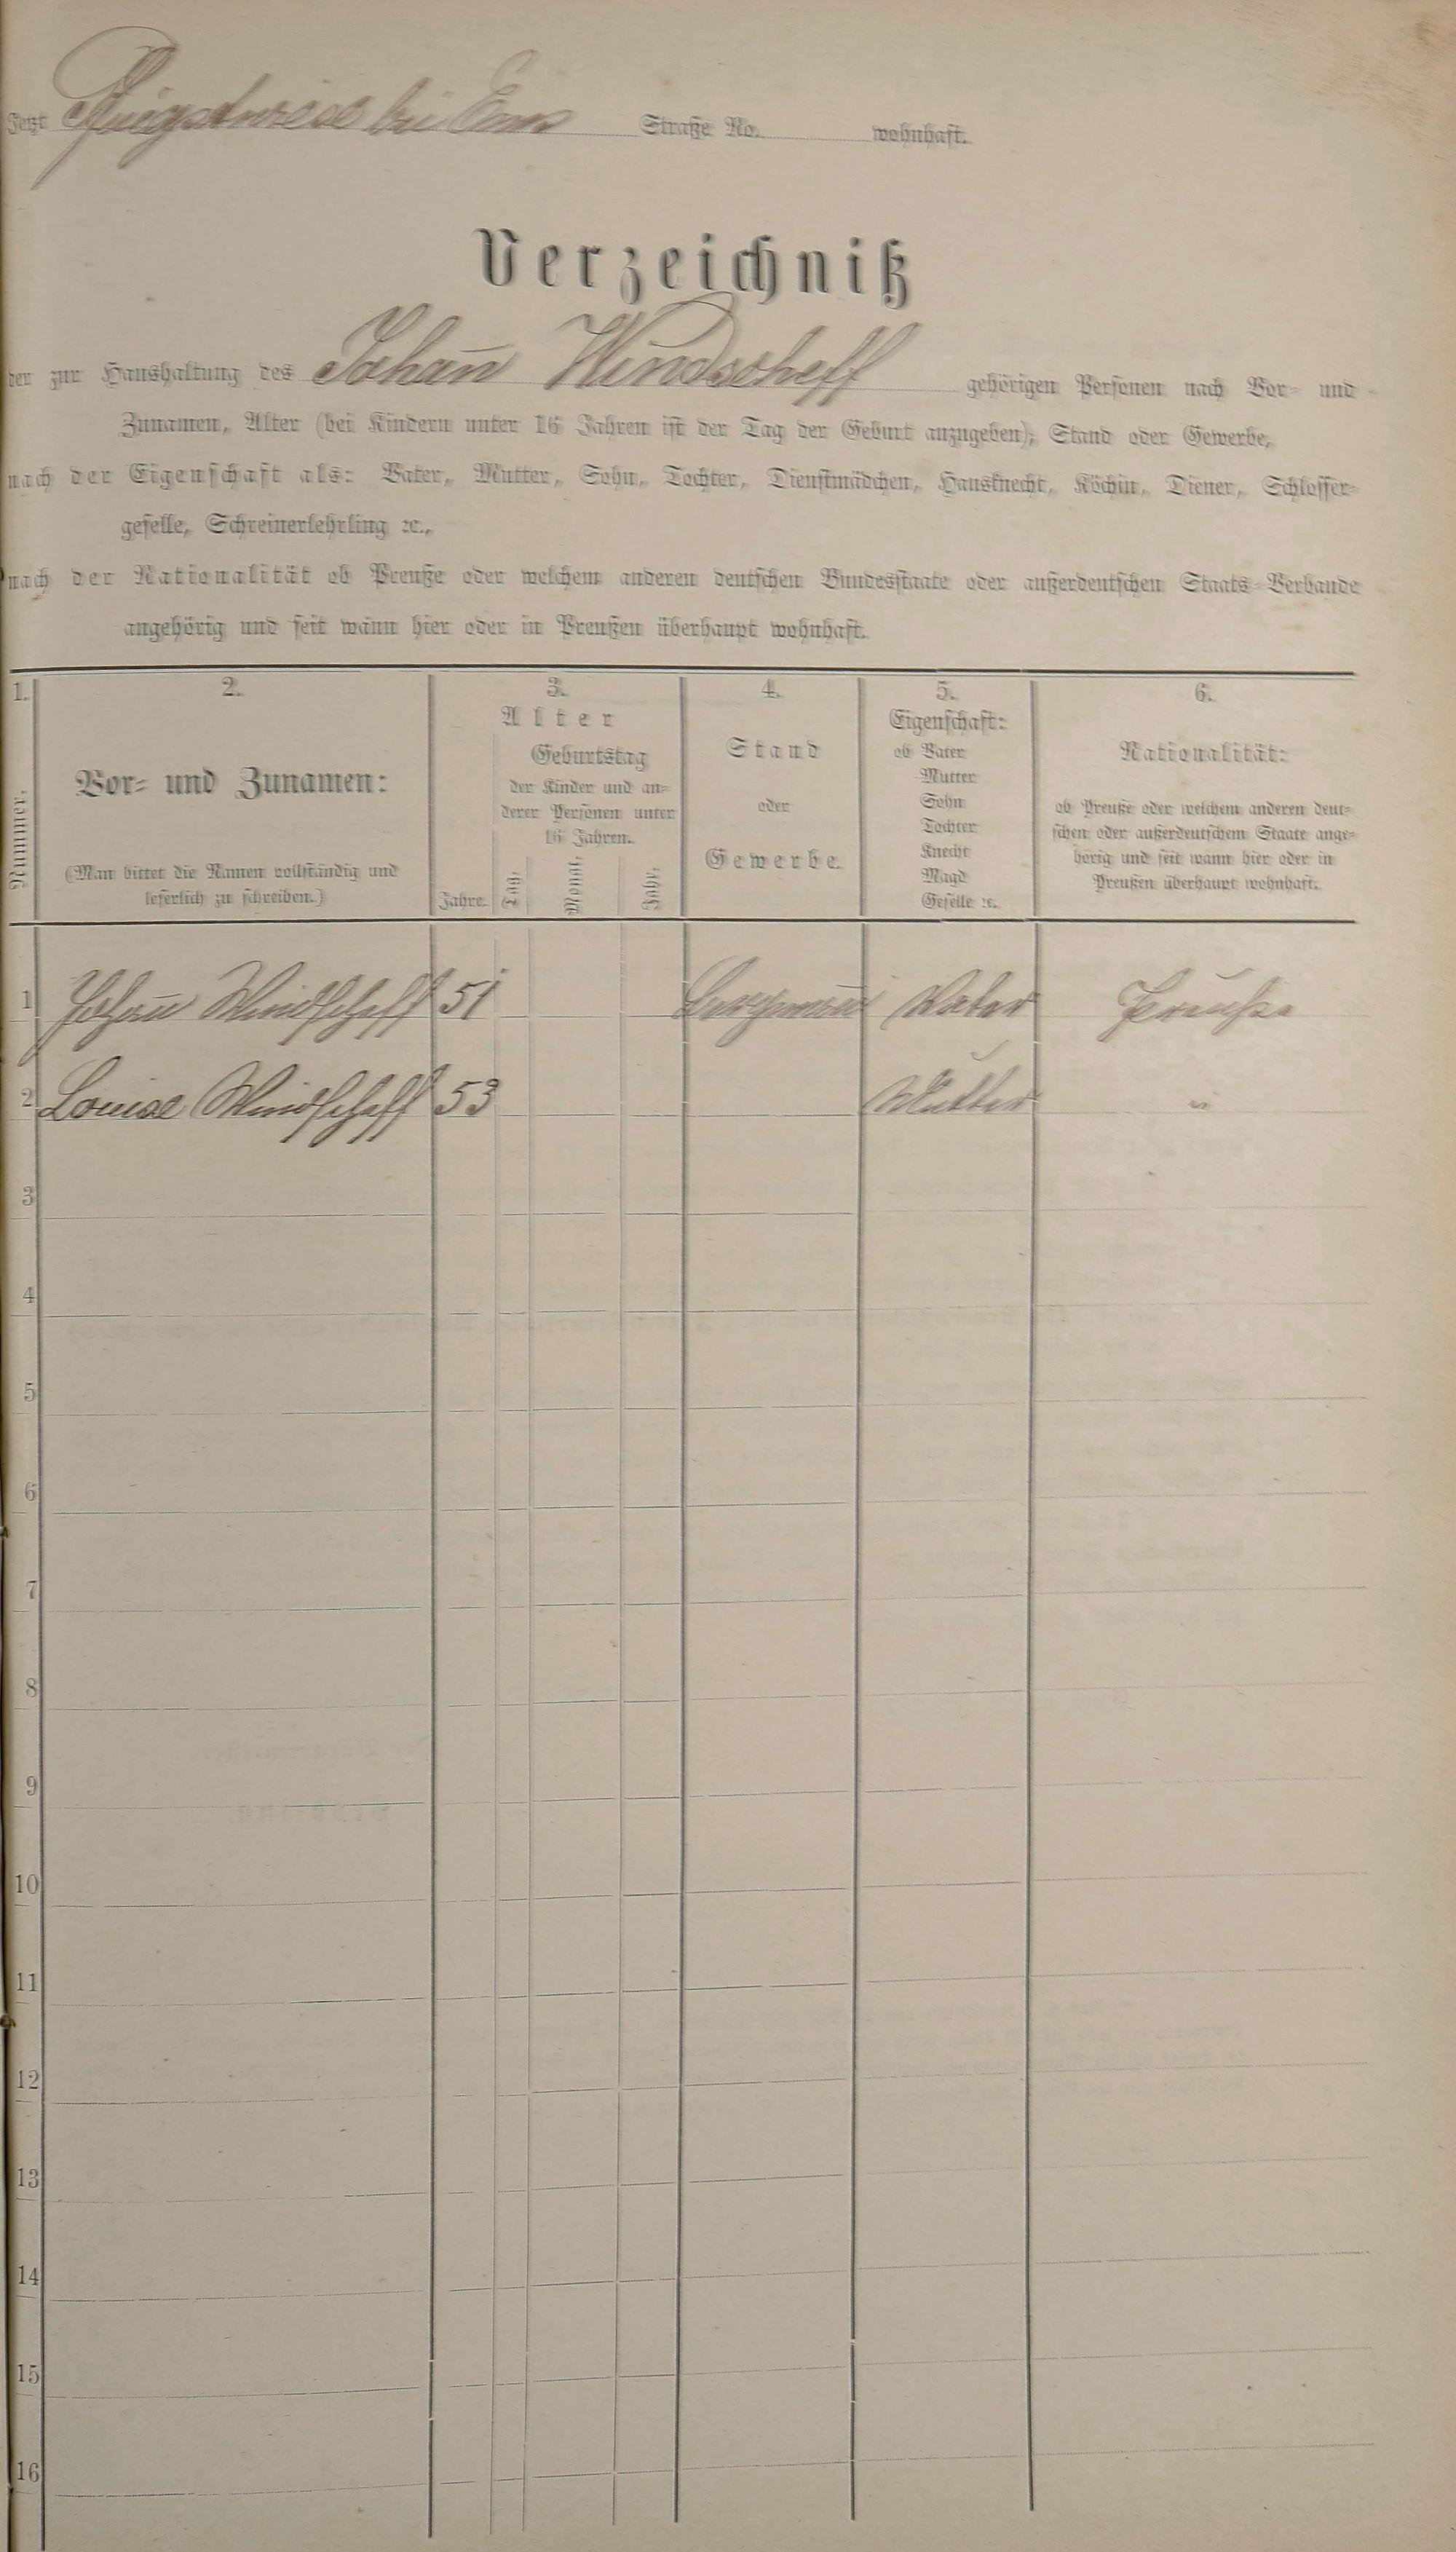 Jetzt Pfingstwiese bei Ems Straße No. wohnhaft.
Verzeichniß
der zur Haushaltung des Johan̄ Windscheff gehörigen Personen nach Vor- und
Zunamen, Alter (bei Kindern unter 16 Jahren ist der Tag der Geburt anzugeben); Stand oder Gewerbe,
nach der Eigenschaft als: Vater, Mutter, Sohn, Tochter, Dienstmädchen, Hausknecht, Köchin, Diener, Schlosser-
geselle, Schreinerlehrling ꝛc.,
nach der Nationalität ob Preuße oder welchem anderen deutschen Bundesstaate oder außerdeutschen Staats-Verbande
angehörig und seit wann hier oder in Preußen überhaupt wohnhaft.
1. 2. 3. 4. 5. 6.
Nummer.
Vor- und Zunamen:
(Man bittet die Namen vollständig und
leserlich zu schreiben.)
Alter
Geburtstag
der Kinder und an-
derer Personen unter
16 Jahren.
Jahre. Tag. Monat. Jahr.
Stand
oder
Gewerbe.
Eigenschaft:
ob Vater
Mutter
Sohn
Tochter
Knecht
Magd
Geselle ꝛc.
Nationalität:
ob Preuße oder welchem anderen deut-
schen oder außerdeutschem Staate ange-
hörig und seit wann hier oder in
Preußen überhaupt wohnhaft.
1 Johan̄ Windscheff 51 Bergman̄ Vater Preuße
2 Louise Windscheff 53 Mutter "
3
4
5
6
7
8
9
10
11
12
13
14
15
16